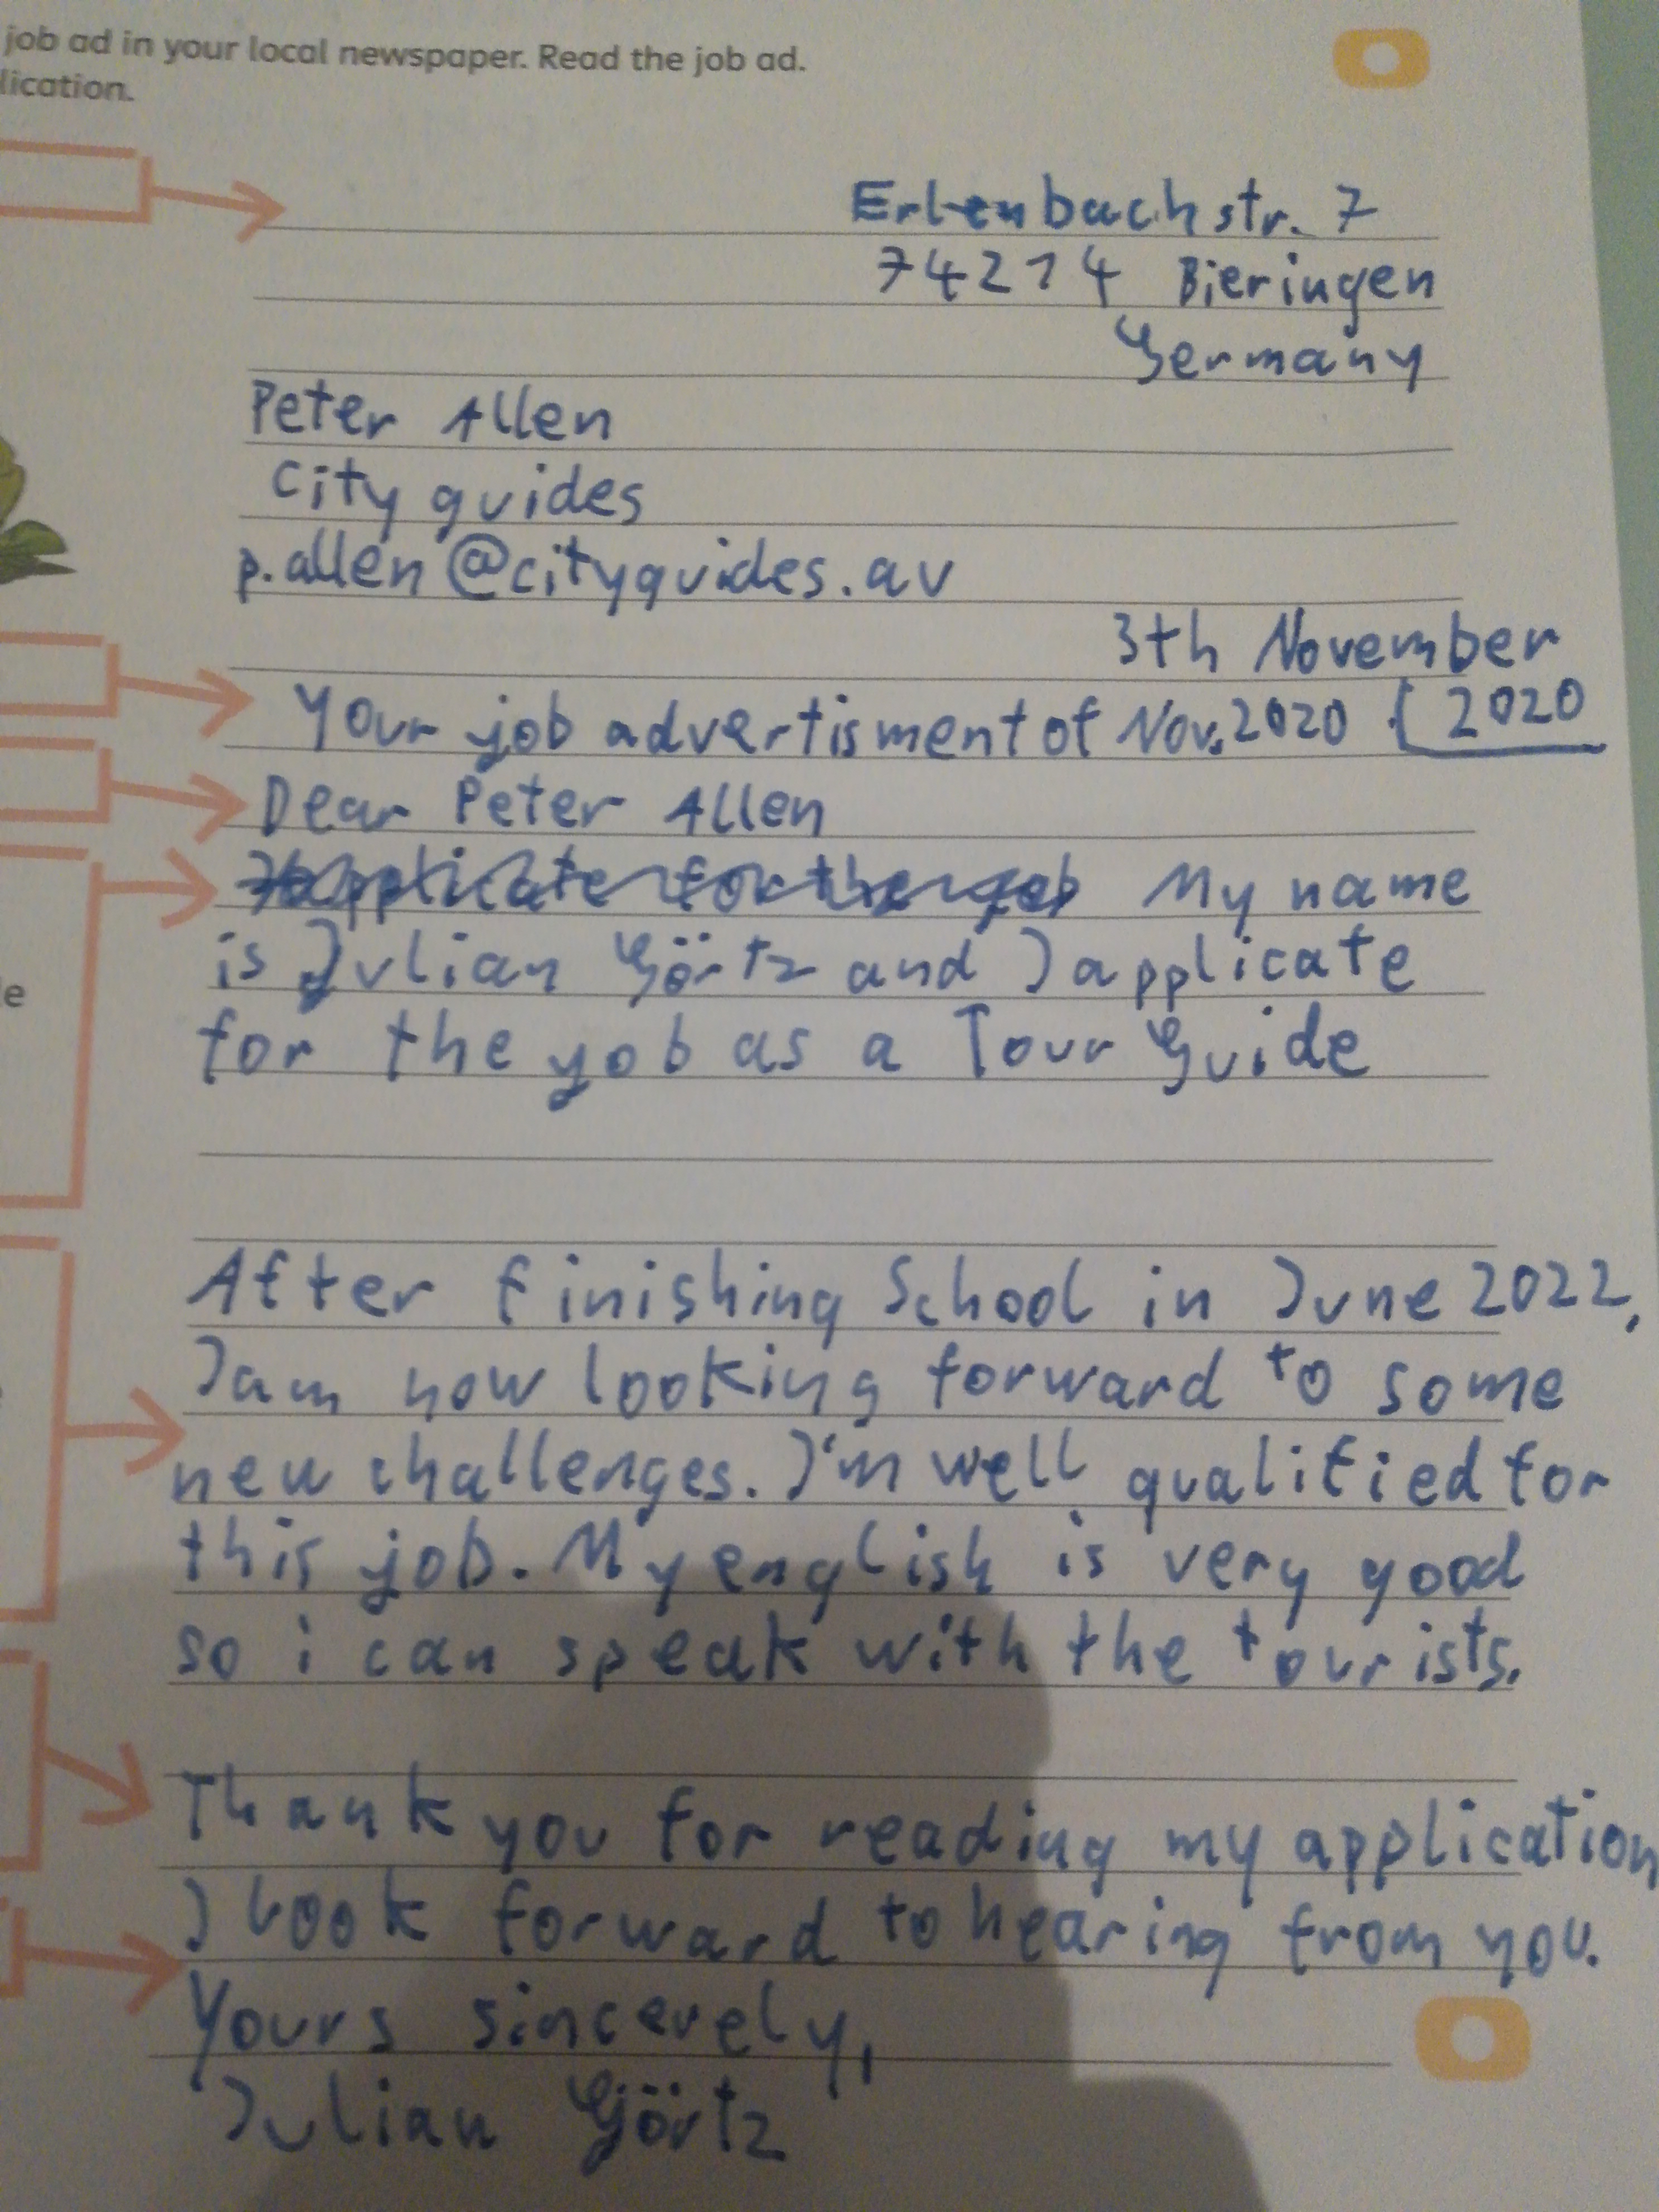 job ad in your local newspaper. Read the job ad.
lication.
Erlenbachstr. 7
74214 Bieringen
Germany
Peter Allen
City guides
p.allen@cityguides.av
3th November
2020
Your job advertisment of Nov. 2020
Dear Peter Allen
applicate for the job My name
is Julian Görtz and I applicate
for the job as a Tour Guide
e
After finishing School in June 2022,
I am now looking forward to some
new challenges. I'm well qualified for
this job. My english is very good
so i can speak with the tourists.
Thank you for reading my application
I look forward to hearing from you.
Yours sincerely,
Julian Görtz